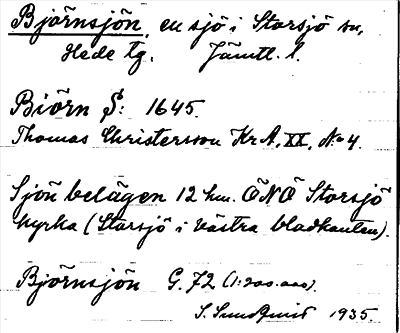 Björnsjön, en sjö i Storsjö sn,
Hede tg. Jämtl. l.
Biörn S: 1645.
Thomas Christersson Kr A, XX, No 4.
Sjön belägen 12 km. ÖNÖ Storsjö
kyrka (Storsjö i västra bladkanten).
Björnsjön G. 72 (1:200.000).
S. Sundqvist 1935.